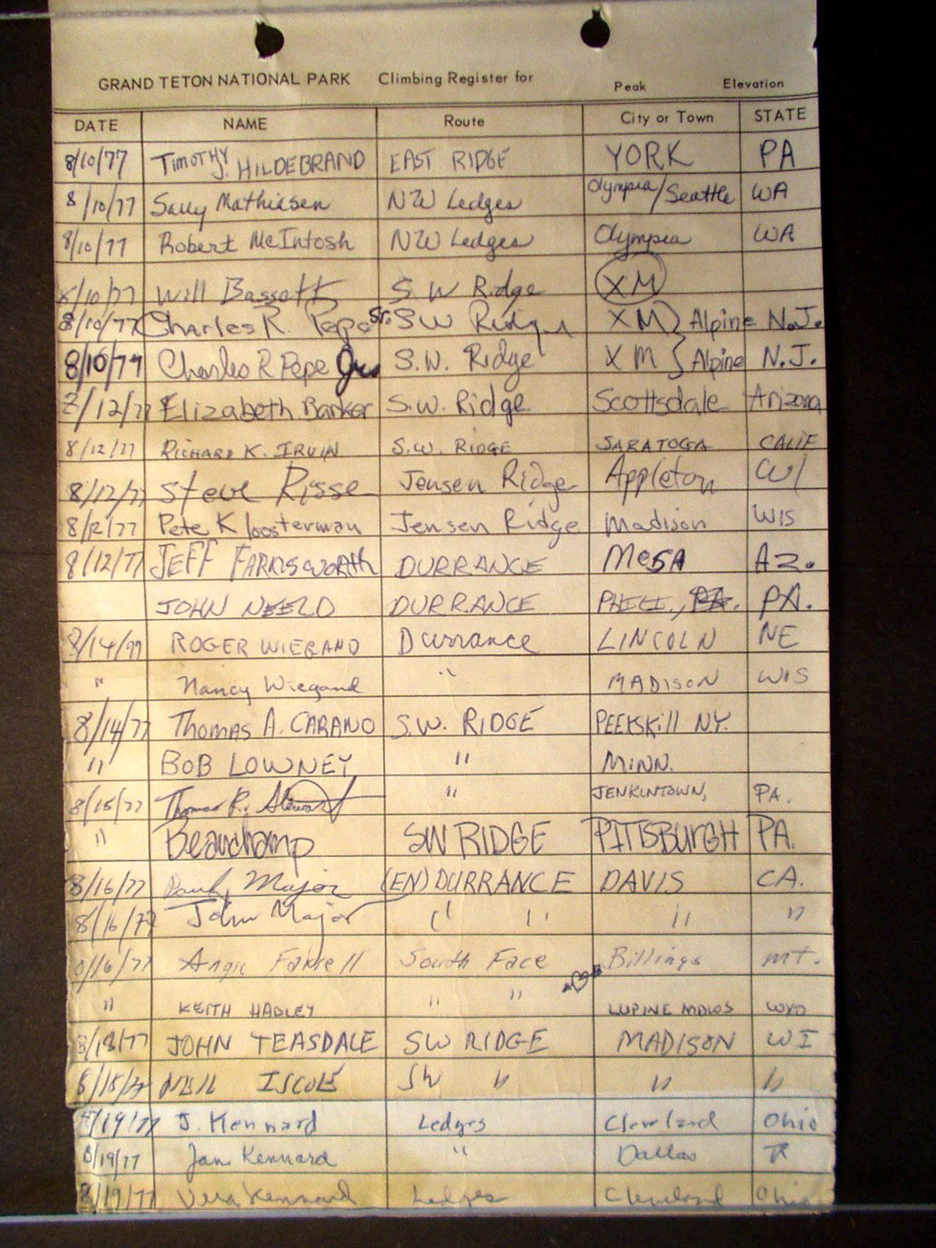 GRAND TETON NATIONAL PARK Climbing Register for Peak Elevation
DATE NAME Route City or Town STATE
8/10/77 TIMOTHY J. HILDEBRAND EAST RIDGE YORK PA
8/10/77 Sally Mathiasen NW Ledges Olympia/Seattle WA
8/10/77 Robert McIntosh NW Ledges Olympia WA
8/10/77 Will Bassett S.W Ridge XM
8/10/77 Charles R. Pepe Sr. SW Ridge XM } Alpine N.J.
8/10/77 Charles R Pepe S.W. Ridge XM } Alpine N.J.
/12/77 Elizabeth Barker S.W. Ridge Scottsdale Arizona
8/12/77 RICHARD K. IRVIN S.W. RIDGE SARATOGA CALIF
8/12/77 Steve Risse Jensen Ridge Appleton WI
8/12/77 Pete Kloosterman Jensen Ridge Madison WIS
8/12/77 JEFF FARNSWORTH DURRANCE MESA AZ.
JOHN DURRANCE PA.
8/14/77 ROGER WIEGAND Durrance LINCOLN NE
" Nancy Wiegand " MADISON WIS
8/14/77 Thomas A. CARANO S.W. RIDGE PEEKSKILL NY.
" BOB LOWNEY " MINN.
8/15/77 Thomas R. Stewart " JENKINTOWN, PA.
" Beauchamp SW RIDGE PITTSBURGH PA.
8/16/77 Paul Major (EN)DURRANCE DAVIS CA.
8/16/77 John Major " " " "
8/16/77 Angie Farrell South Face Billings mt.
" KEITH HADLEY " " LUPINE MDWS WYO
8/18/77 JOHN TEASDALE SW RIDGE MADISON WI
8/18/77 NEIL SW " " "
8/19/77 J. Kennard Ledges Cleveland Ohio
8/19/77 Jan Kennard " Dallas
8/19/77 Vera Kennard Ledges Cleveland Ohio